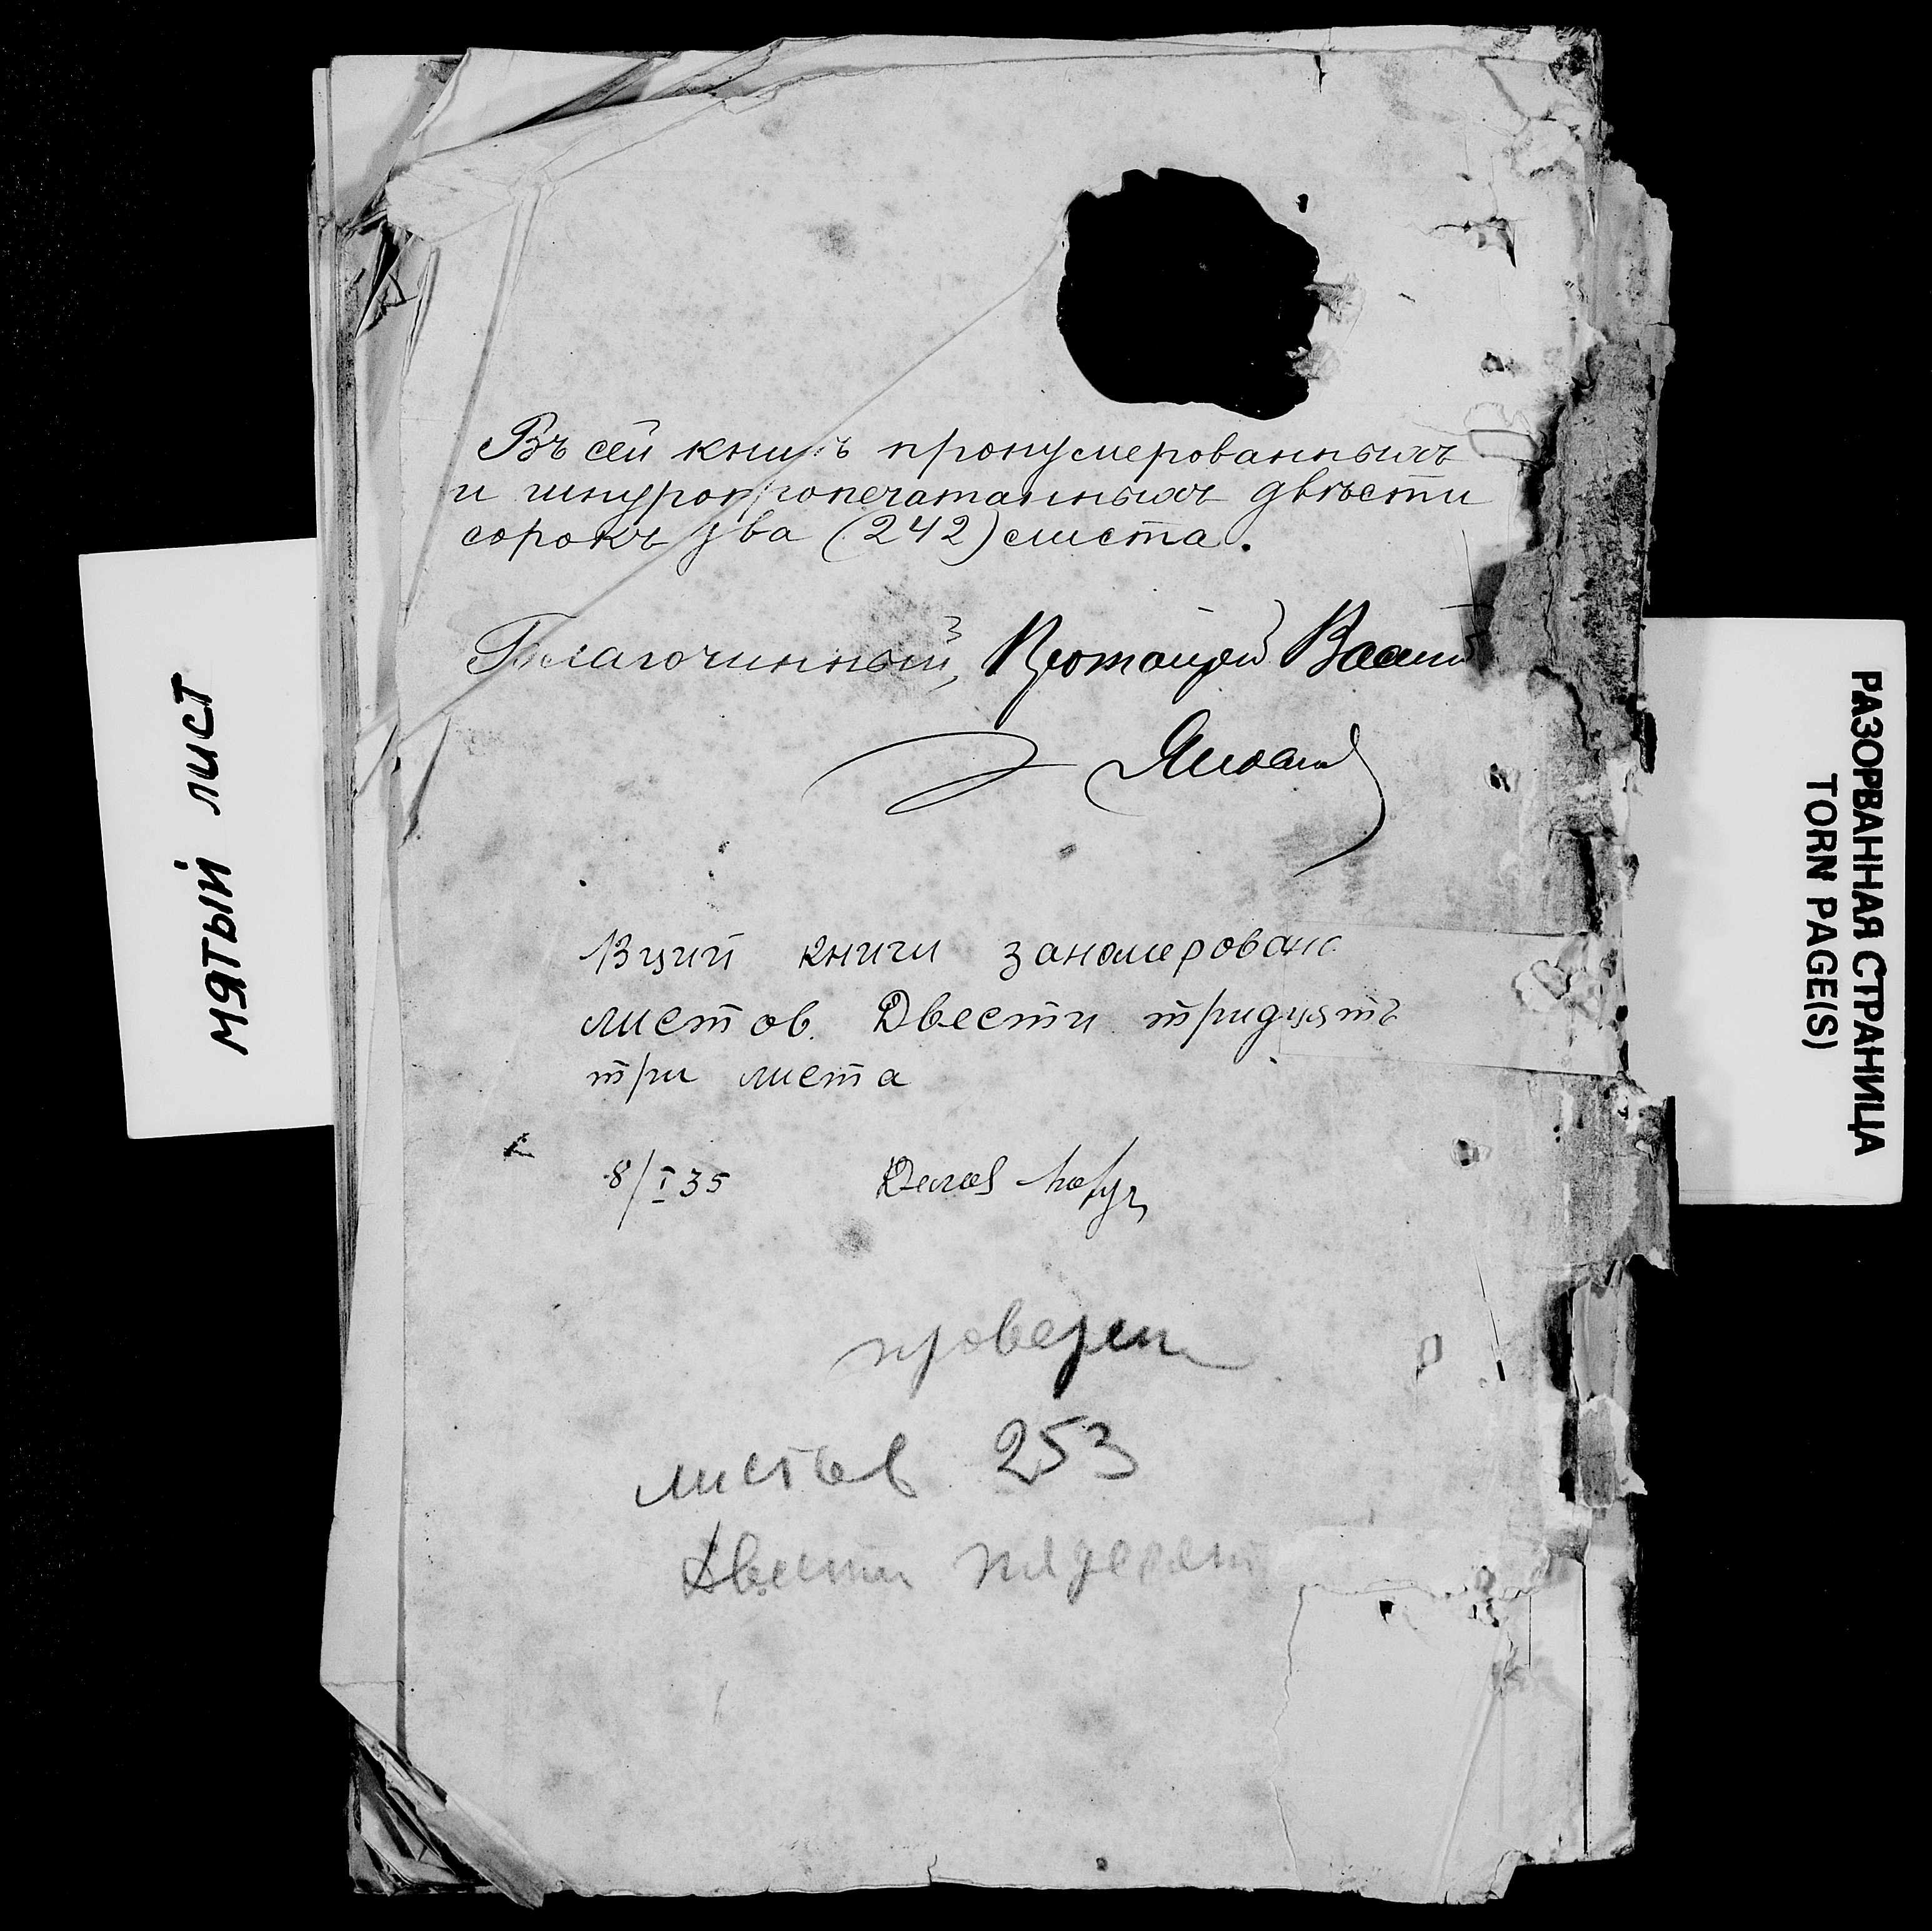 Въ сей книгѣ пронумерованныхъ
и шнуропропечатанныхъ двѣсти
сорокъ два (242) листа.
Благочинный, Протоіерей Васил
В ций книги заномеровано
листов. Двести тридцять
три листа
8/I 35
проверен
листов 253
Двести пядесят
мятый лист
РАЗОРВАННАЯ СТРАНИЦА
TORN PAGE(S)